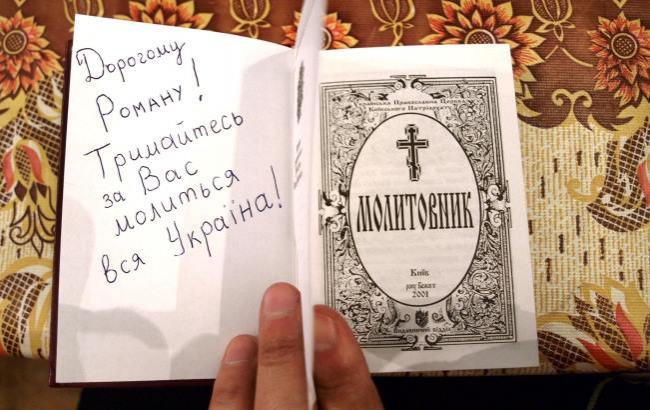 Дорогому
Роману!
Тримайтесь
за Вас
молиться
вся Україна!
Українська Православна Церква
Київського Патріархату
МОЛИТОВНИК
Київ
року Божого
2001
Видавничий відділ